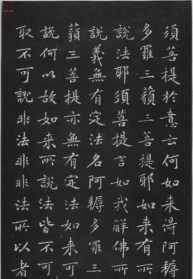 須菩提於意云何如來得阿耨
多羅三藐三菩提耶如來有所
說法耶須菩提言如我解佛所
說義無有定法名阿耨多羅三
藐三菩提亦無有定法如來可
說何以故如來所說法皆不可
取不可說非法非非法所以者